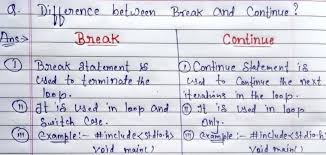 Q. Difference between Break and Continue ?
Ans:→ Break Continue
(I) Break statement is
used to terminate the
loop.
(II) It is used in loop and
Switch Case.
(III) Example:- #include<stdio.h>
Void main()
(I) Continue Statement is
used to Continue the next
iterations in the loop.
(II) It is used in loop
Only.
(III) Example:- #include<stdio.h>
Void main()